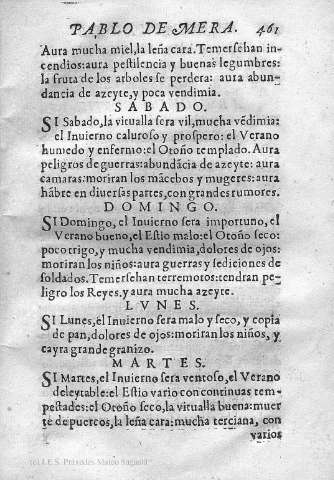 PABLO DE MERA. 461
Aura mucha miel, la leña cara. Temersehan in-
cendios: aura pestilencia y buenas legumbres:
la fruta de los arboles se perdera: aura abun-
dancia de azeyte, y poca vendimia.
SABADO.
SI Sabado, la vitualla sera vil, mucha vẽdimia:
el Inuierno caluroso y prospero: el Verano
humedo y enfermo: el Otoño templado. Aura
peligros de guerras: abundãcia de azeyte: aura
camaras: moriran los mãcebos y mugeres: aura
hãbre en diuersas partes, con grandes rumores.
DOMINGO.
SI Domingo, el Inuierno sera importuno, el
Verano bueno, el Estio malo: el Otoño seco:
poco trigo, y mucha vendimia, dolores de ojos:
moriran los niños: aura guerras y sediciones de
soldados. Temersehan terremotos: tendran pe-
ligro los Reyes, y aura mucha azeyte.
LVNES.
SI Lunes, el Inuierno sera malo y seco, y copia
de pan, dolores de ojos: moriran los niños, y
cayra grande granizo.
MARTES.
SI Martes, el Inuierno sera ventoso, el Verano
deleytable: el Estio vario con continuas tem-
pestades: el Otoño seco, la vitualla buena: muer
te de puercos, la leña cara: mucha terciana, con
varios
(c) I.E.S. Práxedes Mateo Sagasta